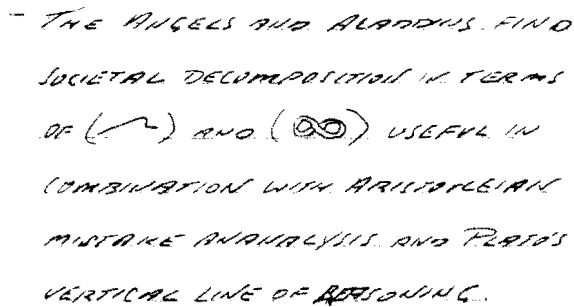 - THE ANGELS AND ALADDINS FIND
SOCIETAL DECOMPOSITION IN TERMS
OF ( ) AND ( ) USEFUL IN
COMBINATION WITH ARISTOTLEIAN
MISTAKE ANANALYSIS AND PLATO'S
VERTICAL LINE OF REASONING.